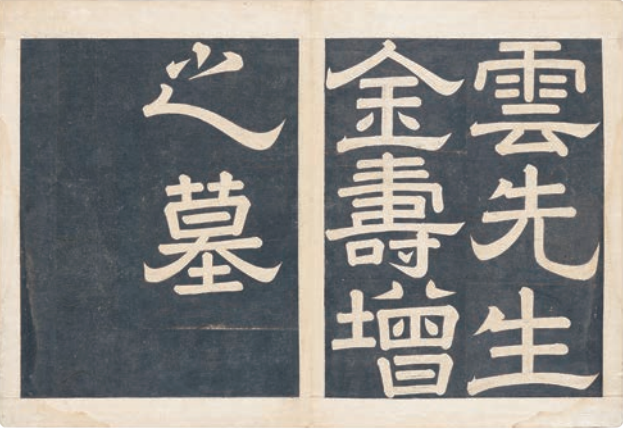 雲先生
金壽增
之墓